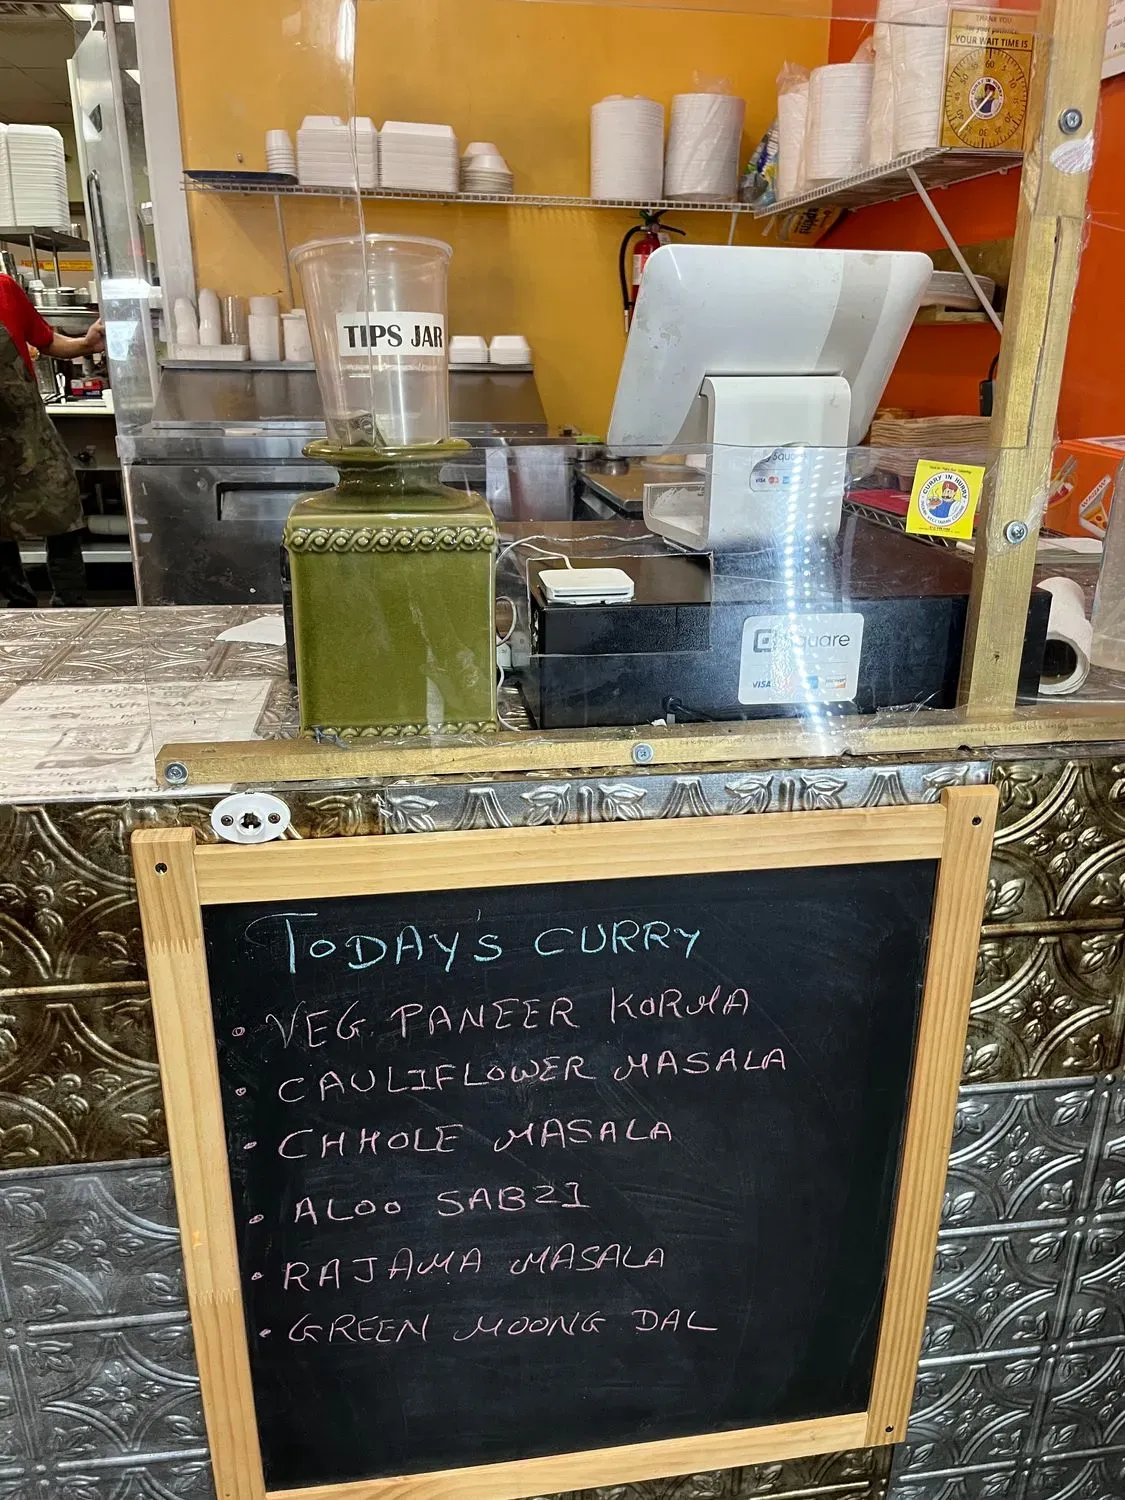 THANK YOU
for your patience.
YOUR WAIT TIME IS
TIPS JAR
Square
VISA
CURRY IN HURRY
Square
VISA
TODAY'S CURRY
• VEG. PANEER KORMA
• CAULIFLOWER MASALA
• CHHOLE MASALA
• ALOO SABZI
• RAJAMA MASALA
• GREEN MOONG DAL